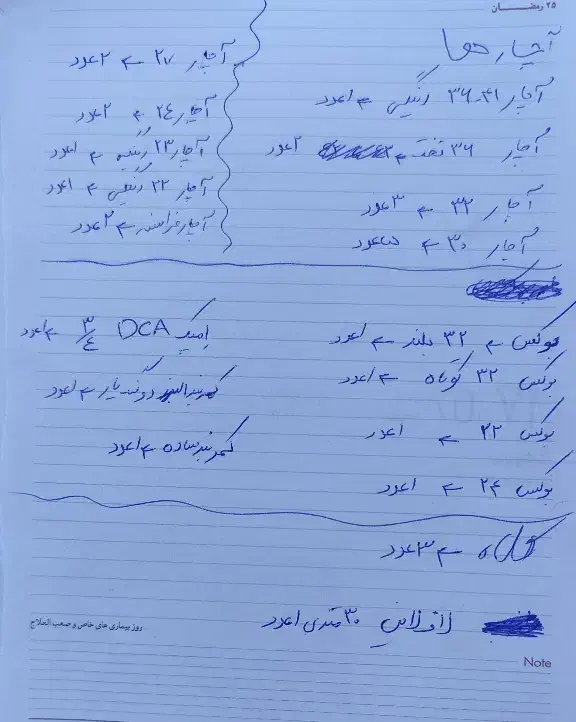 ۲۵ رمضــــان
آچار ها
آچار ۴۱-۳۶ رینگی ← ۱عدد
آچار ۳۶ تخت ← ۲عدد
آچار ۳۲ ← ۳عدد
آچار ۳۰ ← ۵عدد
آچار ۲۷ ← ۲عدد
آچار ۲۴ ← ۲عدد
آچار ۲۳ رینگی ← ۱عدد
آچار ۲۲ رینگی ← ۱عدد
آچار فرانسه ← ۲عدد
بوکس ← ۳۲ بلند ← ۱عدد
بوکس ۳۲ کوتاه ← ۱عدد
بوکس ۲۲ ← ۱عدد
بوکس ۲۴ ← ۱عدد
DCA ۳/۴ ← ۱عدد
کمربند ← ۱عدد
کمربند ساده ← ۱عدد
کلاه ← ۳عدد
۳۰ متری ۱عدد
روز بیماری های خاص و صعب العلاج
Note